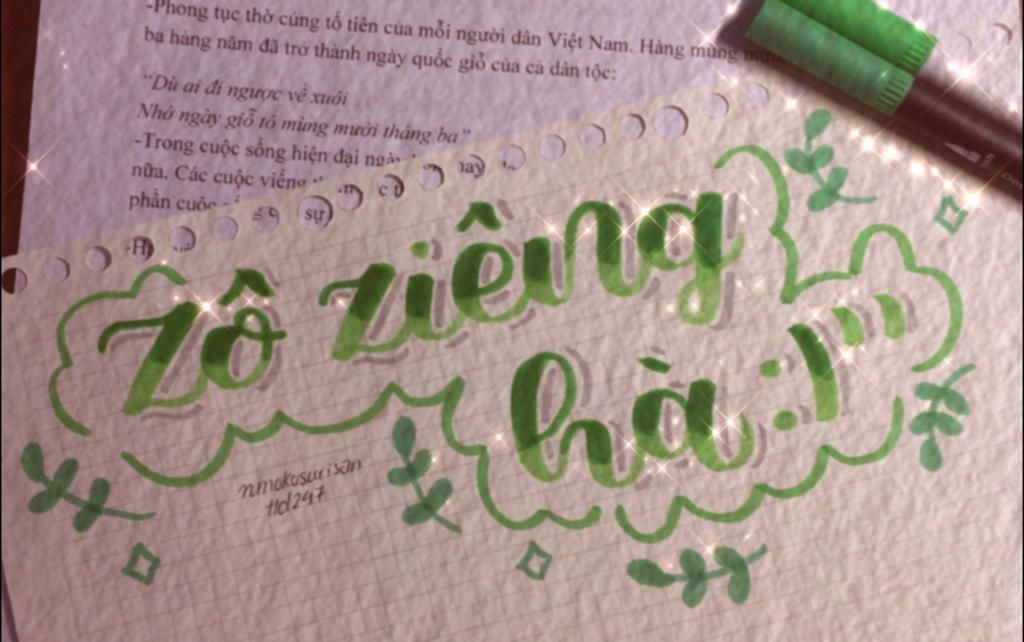 -Phong tục thờ cúng tổ tiên của mỗi người dân Việt Nam. Hàng mùng
ba hàng năm đã trở thành ngày quốc giỗ của cả dân tộc:
“Dù ai đi ngược về xuôi
Nhớ ngày giỗ tổ mùng mười tháng ba”
-Trong cuộc sống hiện đại ngày nay
nữa. Các cuộc viếng
phần cuộc sự
Zô ziêng
hà :)
nmokosurisan
tld247